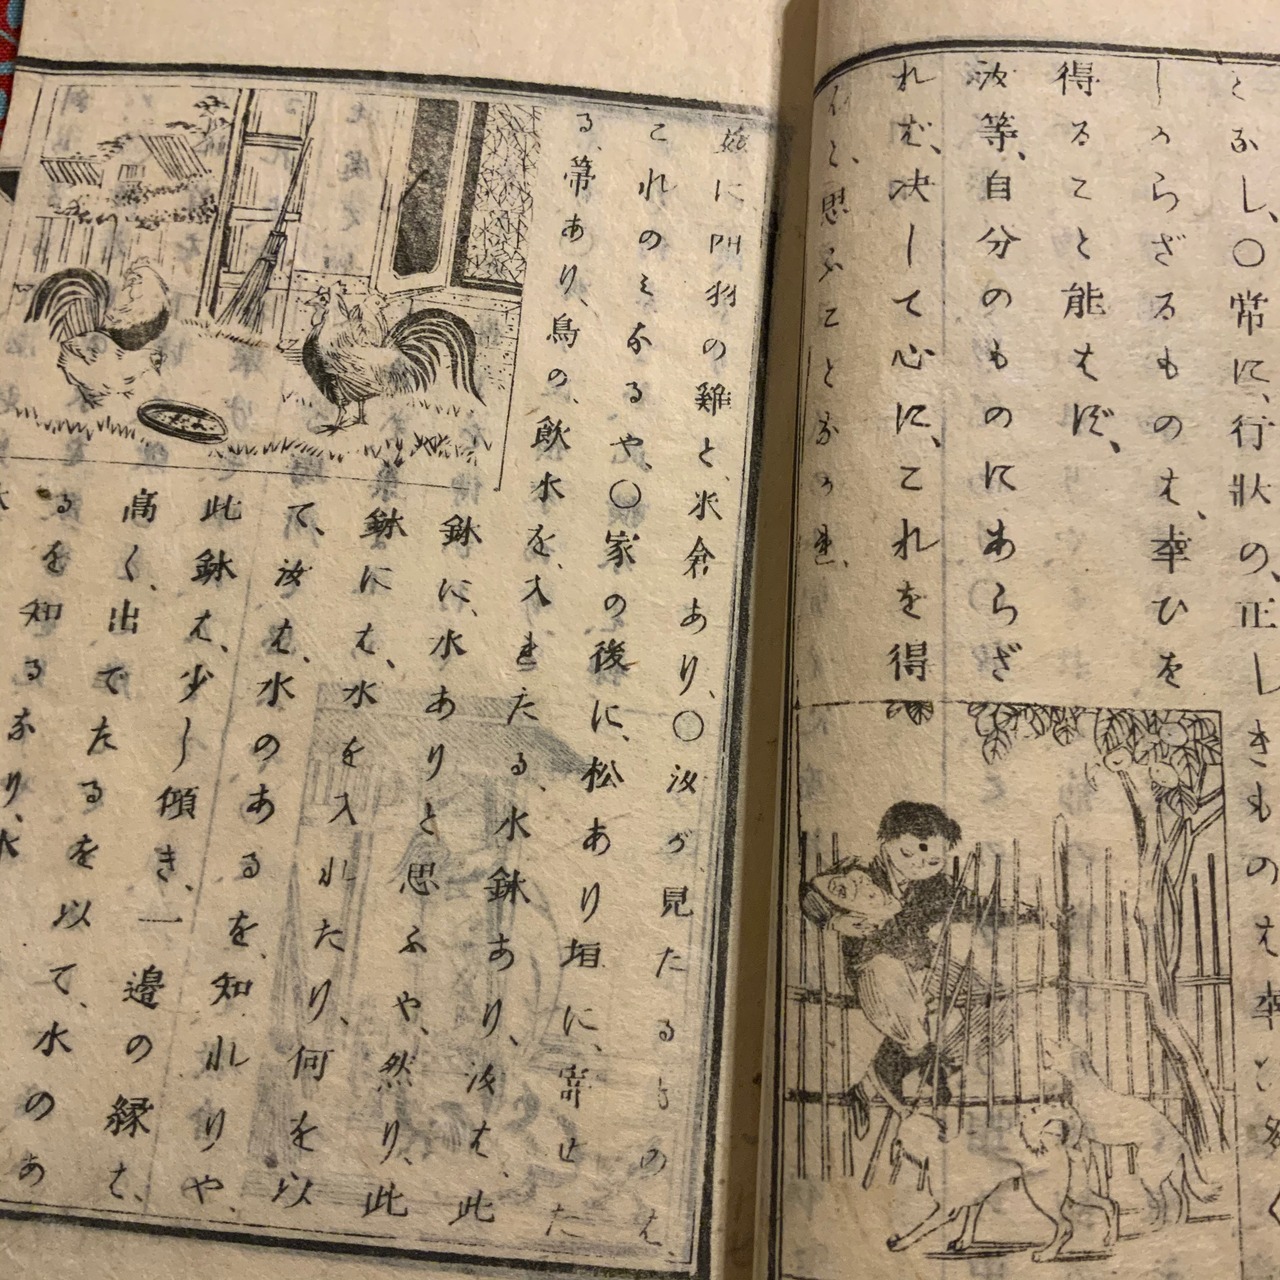 となし、〇常に、行狀の、正しきものは幸ひ多く
しからざるものは、幸ひを
得ること能はず、
汝等、自分のものにあらざ
れば、决して心に、これを得
んと、思ふことなかれ、
茲に四羽の雞と、米倉あり、〇汝が見たるものは、
これのみなるや、〇家の後に、松あり垣に、寄せた
る、箒あり、鳥の、飲水を、入れたる、水鉢あり、汝は、此
鉢に、水ありと思ふや、然り、此
鉢には、水を入れたり、何を以
て、汝は、水のあるを、知れりや、
此鉢は、少し傾き、一邊の縁は、
高く、出でたるを以て、水のあ
るを知るなり、水